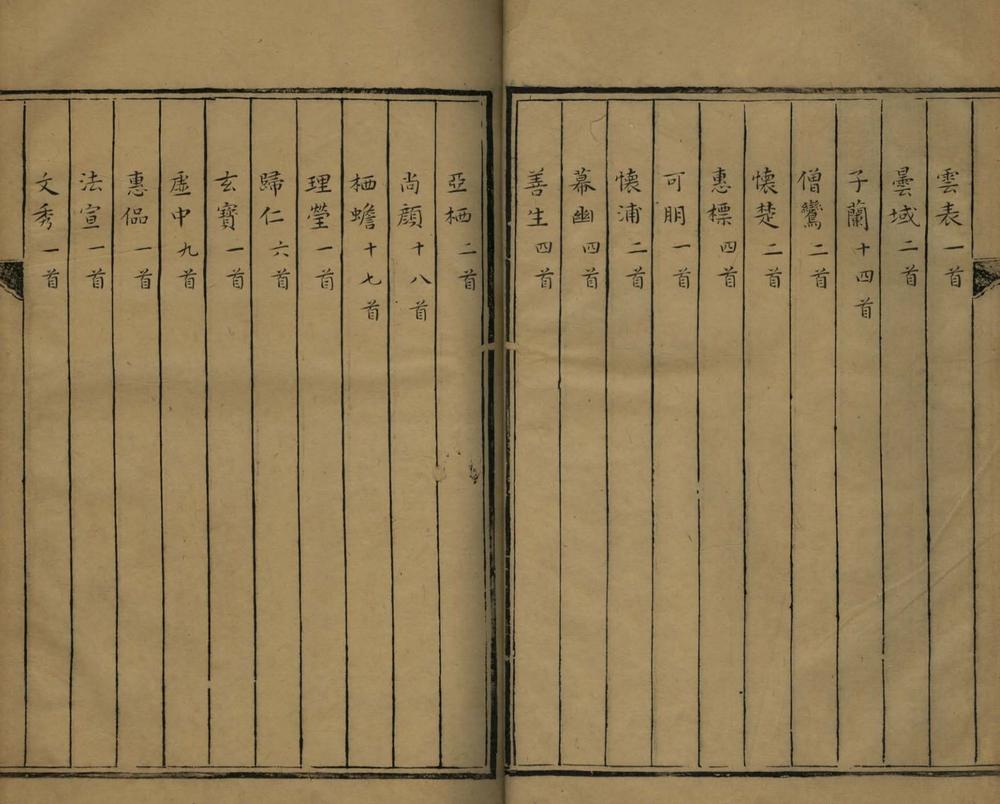 雲表一首
曇域二首
子蘭十四首
僧鸞二首
懷楚二首
惠標四首
可朋一首
懷浦二首
幕幽四首
善生四首
亞栖二首
尚顔十八首
栖蟾十七首
理瑩一首
歸仁六首
玄寶一首
虛中九首
惠偘一首
法宣一首
文秀一首